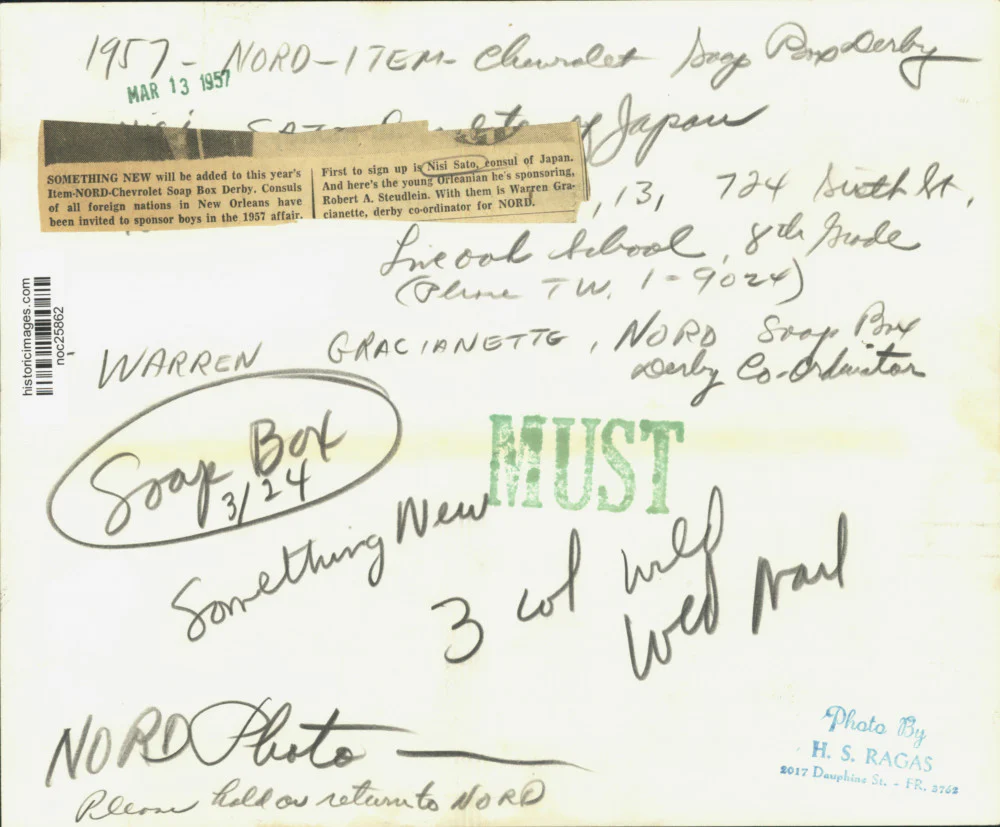 1957 - NORD - ITEM - Chevrolet Soap Box Derby
MAR 13 1957
of Japan
SOMETHING NEW will be added to this year's
Item-NORD-Chevrolet Soap Box Derby. Consuls
of all foreign nations in New Orleans have
been invited to sponsor boys in the 1957 affair.
First to sign up is Nisi Sato, consul of Japan.
And here's the young Orleanian he's sponsoring,
Robert A. Steudlein. With them is Warren Gra-
cianette, derby co-ordinator for NORD.
, 13, 724 Sixth St.,
Live oak School, 8th Grade
(Phone TW. 1-9024)
historicimages.com
noc25862
WARREN GRACIANETTE, NORD Soap Box
Derby Co-Ordinator
Soap Box
3/24
MUST
Something New
3 col
Wed
NORD Photo
Please hold or return to NORD
Photo By
H. S. RAGAS
2017 Dauphine St. - FR. 3762